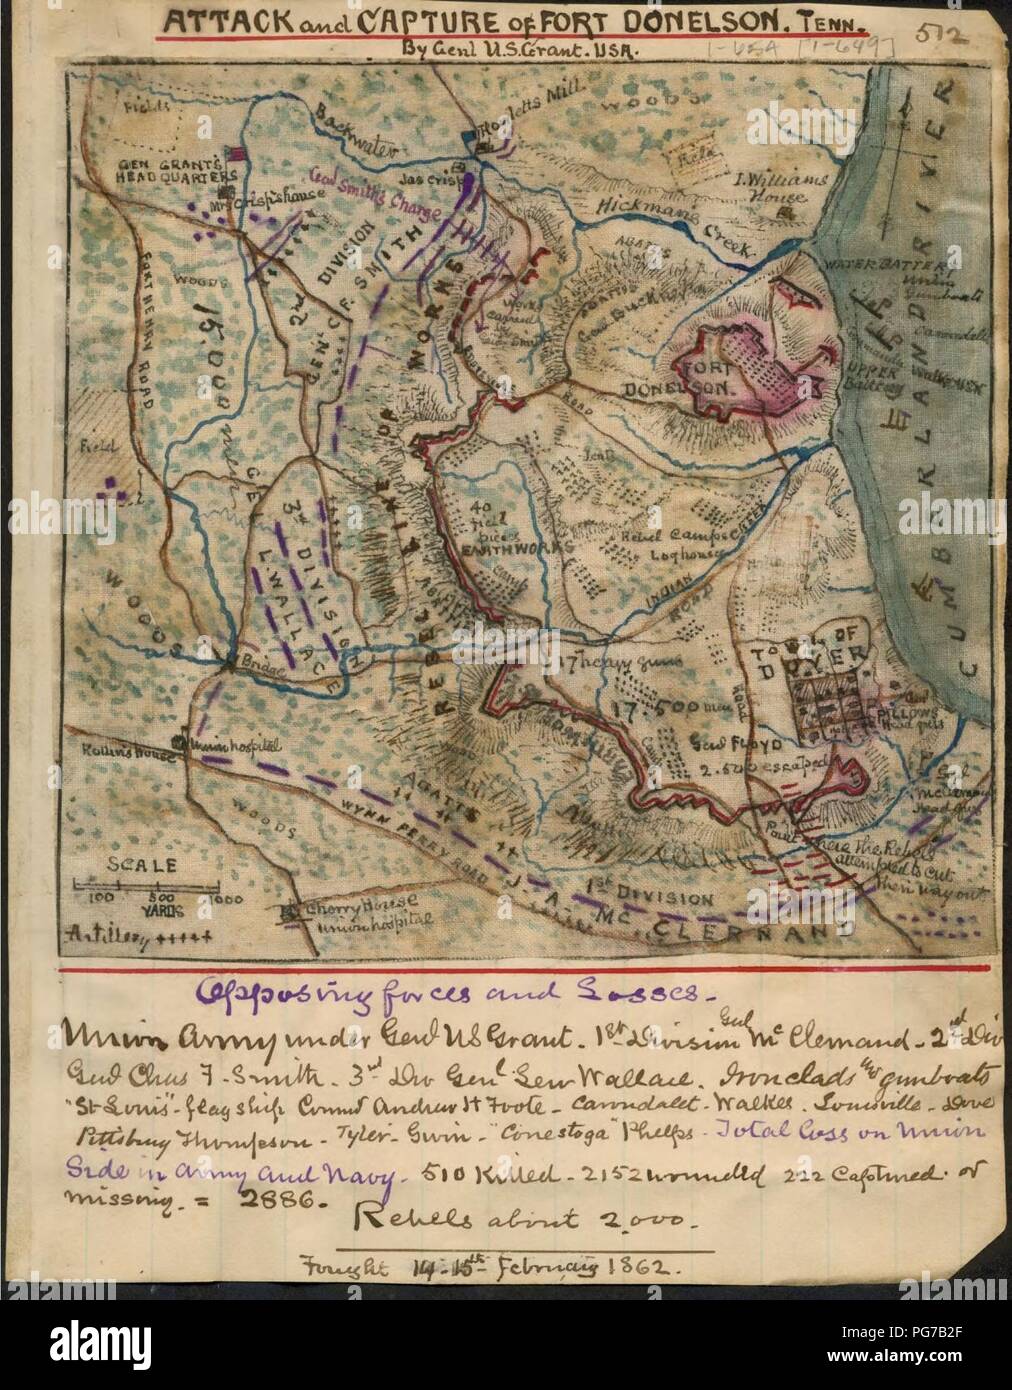 ATTACK and CAPTURE of FORT DONELSON. TENN.
By Genl U.S. Grant. USA.
512
Fields
Backwater
WOODS
GEN GRANT'S
HEADQUARTERS
Mrs Crisp's house
Jas Crisp
Genl Smith's Charge
I. Williams
House
Hickmans
Creek
AGATTS
WATER BATTERY
Union
Gunboats
Carondelet
UPPER
Battery
FORT
DONELSON.
2nd
DIVISION
GEN'L C. F. SMITH
WOODS
15.000 men
FORT HENRY ROAD
Field
LINE OF WORKS
REBEL
ROAD
Tents
40
field
pieces
EARTHWORKS
Camp
Rebel Camps
Log houses
CREEK
INDIAN
ROAD
CUMBERLAND RIVER
3rd DIVISION
L. WALLACE
WOODS
Bridge
17 heavy guns
17.500 men
TOWN OF
DOVER
Genl
PILLOWS
Head qrs
Genl FLOYD
2.500 escaped
ROAD
Rollins House
Union hospital
Genl
McClernand
Head qrs
Point where the Rebels
attempted to cut
their way out
AGATTS
WYNN FERRY ROAD
WOODS
1st DIVISION
J. A. McCLERNAND
SCALE
100 500 1000
YARDS
Cherry House
Union hospital
Artillery +++++
Opposing forces and Losses.
Union Army under Genl US Grant. 1st Division Genl McClernand. 2nd Div
Genl Chas F. Smith. 3rd Div Genl Lew Wallace. Ironclads gunboats
"St Louis" flagship Comd Andrew H Foote - Carondelet - Walke. Louisville - Dove
Pittsburg Thompson - Tyler - Gwin - "Conestoga" Phelps - Total loss on Union
Side in Army and Navy. 510 Killed - 2152 wounded 222 Captured or
missing. = 2886.
Rebels about 2,000.
Fought 14-15th February 1862.
alamy
Image ID: PG7B2F
www.alamy.com